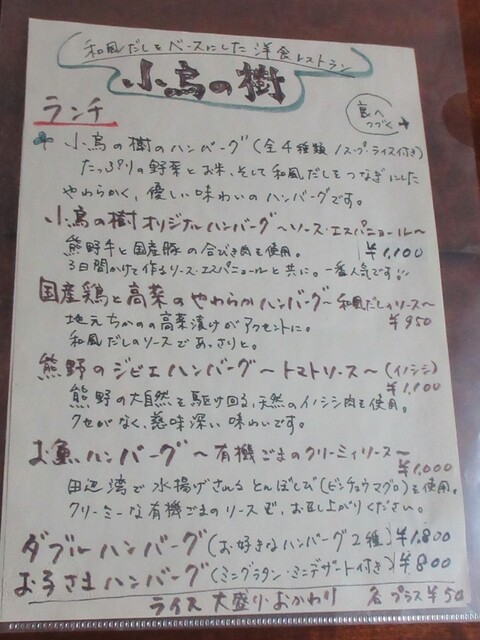 和風だしをベースにした洋食レストラン
小鳥の樹
裏へつづく→
ランチ
小鳥の樹のハンバーグ(全4種類/スープ・ライス付き)
たっぷりの野菜とお米、そして和風だしをつなぎにした
やわらかく、優しい味わいのハンバーグです。
小鳥の樹オリジナルハンバーグ~ソース・エスパニョール~
熊野牛と国産豚の合びき肉を使用。 ¥1,100
3日間かけて作るソース・エスパニョールと共に。一番人気です!!
国産鶏と高菜のやわらかハンバーグ~和風だしソース~
地元ちかのの高菜漬けがアクセントに。 ¥950
和風だしのソースであっさりと。
熊野のジビエハンバーグ~トマトソース~(イノシシ)
¥1,100
熊野の大自然を駆け回る、天然のイノシシ肉を使用。
クセがなく、慈味深い味わいです。
お魚ハンバーグ~有機ごまのクリーミィソース~
¥1,000
田辺湾で水揚げされるとんぼしび(ビンチョウマグロ)を使用。
クリーミーな有機ごまのソースで、お召し上がりください。
ダブルハンバーグ(お好きなハンバーグ2種)¥1,800
お子さまハンバーグ(ミニグラタン・ミニデザート付き)¥800
ライス 大盛り・おかわり 各プラス¥50